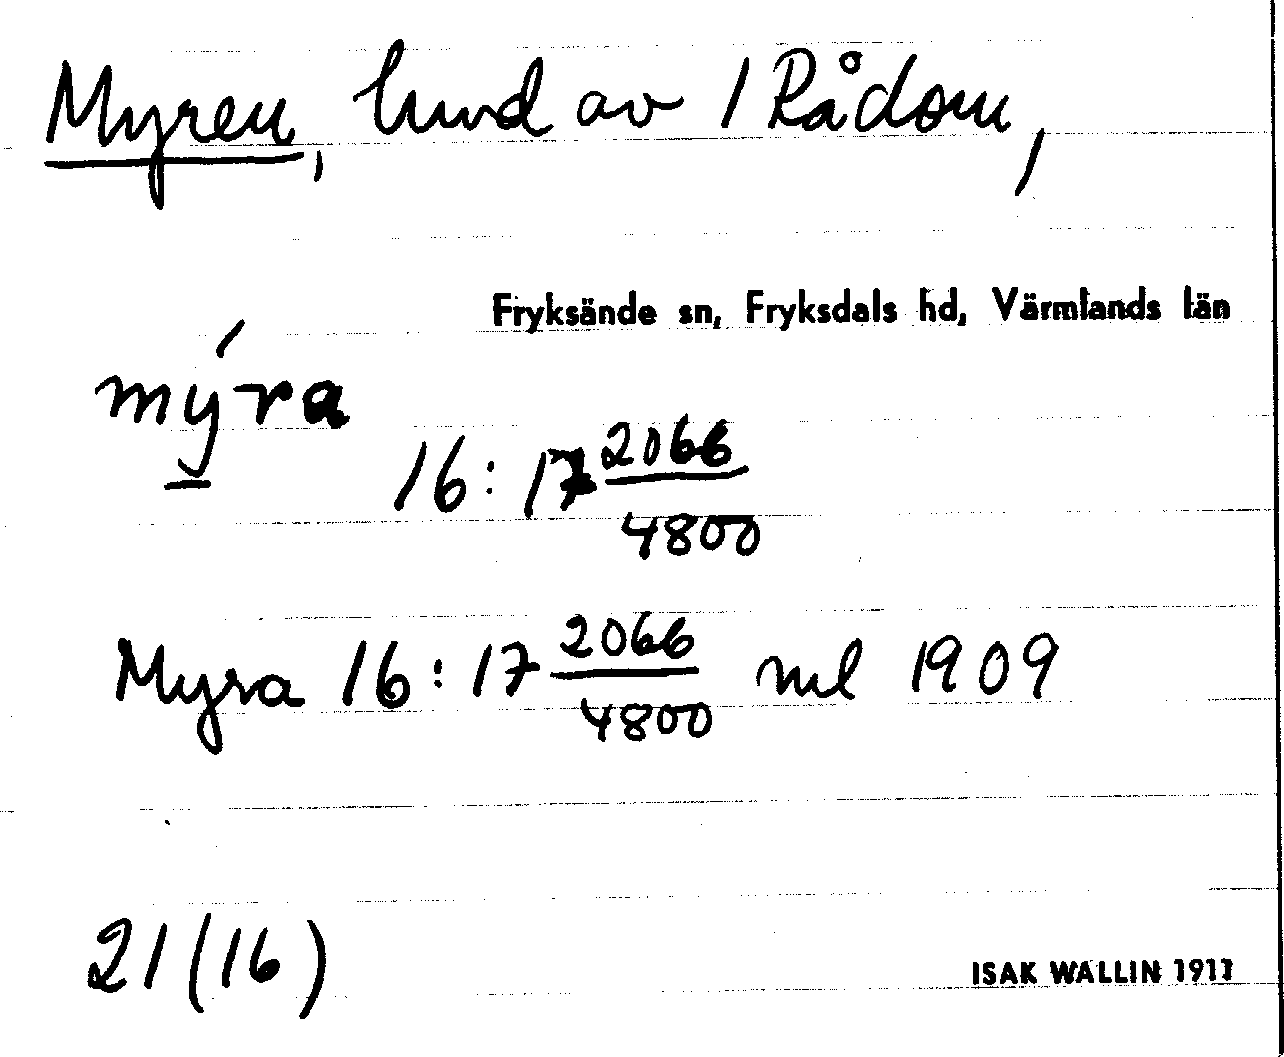 Myren, hmd av 1 Rådom,
Fryksände sn, Fryksdals hd, Värmlands län
mýra
16:17 2066/4800
Myra 16:17 2066/4800 ml 1909
21(16)
ISAK WALLIN 1911